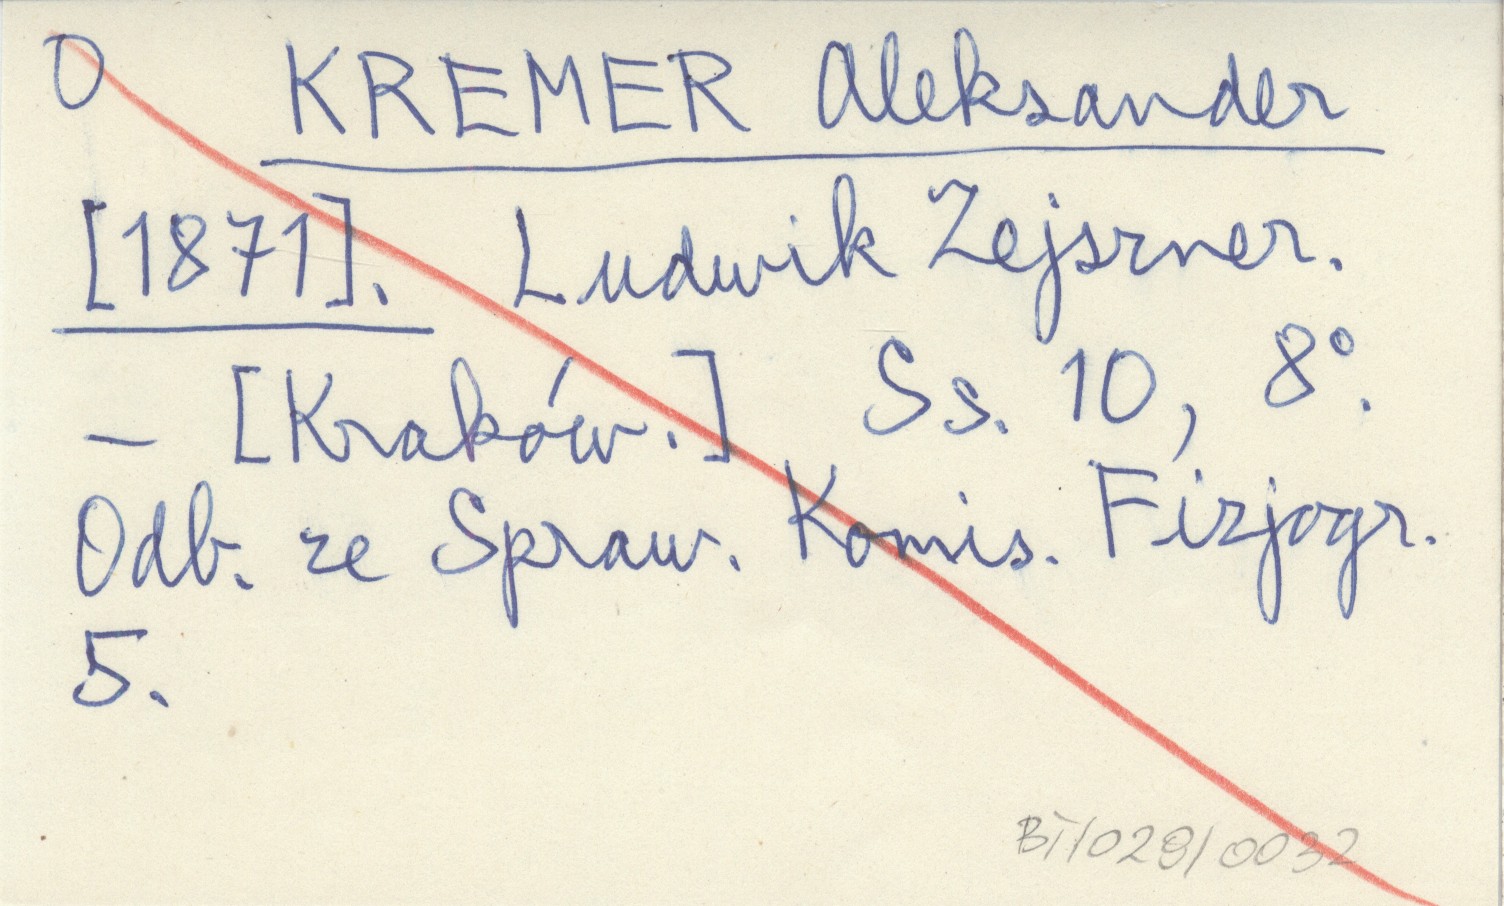 O KREMER Aleksander
[1871]. Ludwik Zejszner.
– [Kraków.] Ss. 10, 8°.
Odb. ze Spraw. Komis. Fizjogr.
5.
BT/028/0032